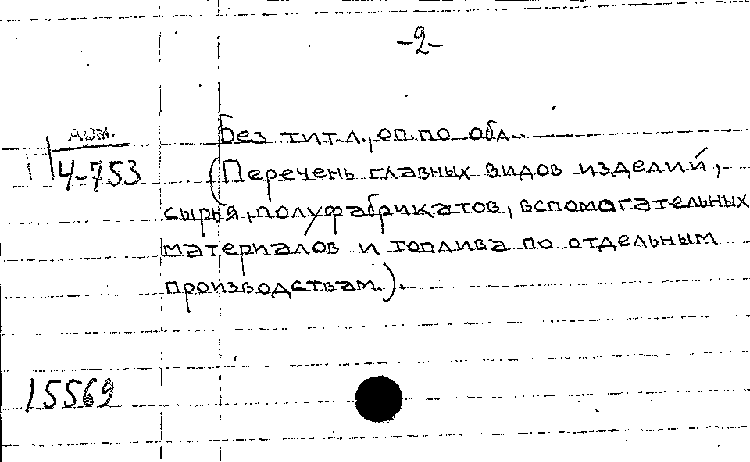 -2-
Без тит.л., оп.по обл.
4-753
(Перечень главных видов изделий,
сырья, полуфабрикатов, вспомогательных
материалов и топлива по отдельным
производствам.).
15569